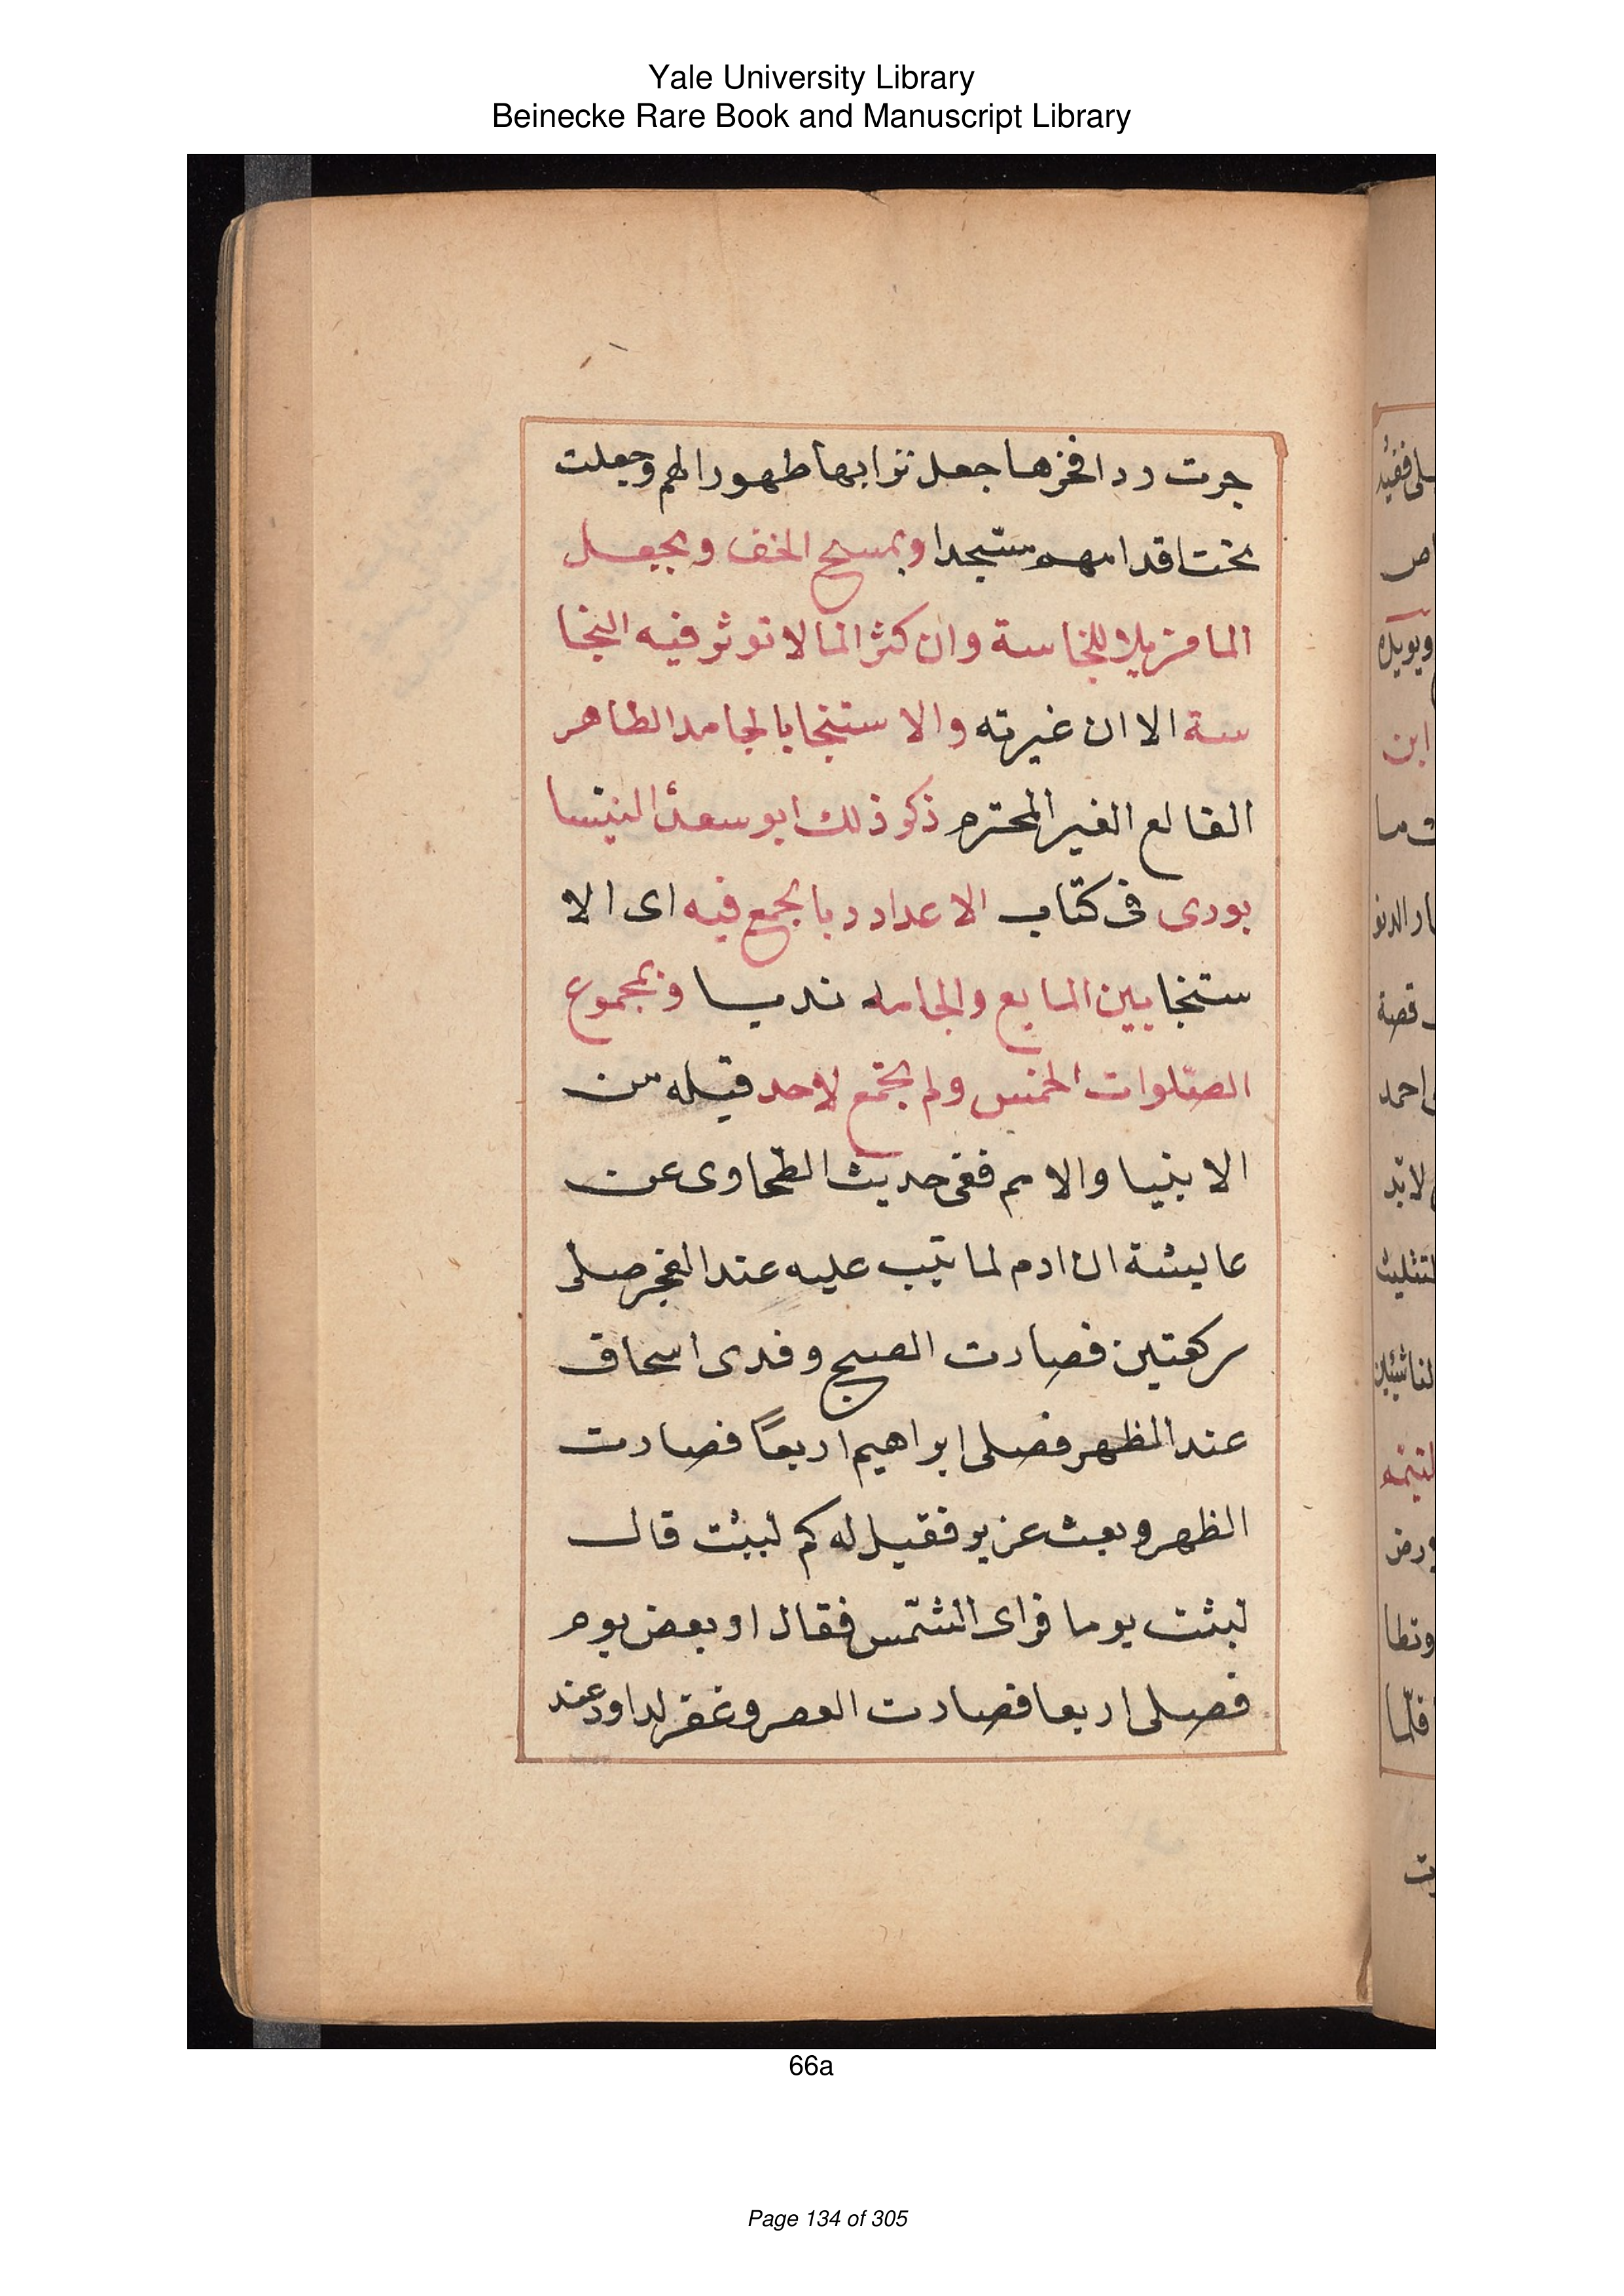 Yale University Library
Beinecke Rare Book and Manuscript Library
جرت ردا فخرها جعل ترابها طهورا لهم وجعلت
تحت اقدامهم ستجدا وبمسح الخف وبجعل
الما مزيلا للنجاسة وان كثر الما لا توثر فيه النجا
سة الا ان غيرته والاستنجا بالجامد الطاهر
القالع الغير المحترم ذكر ذلك ابو سعد النيسا
بورى فى كتاب الاعداد وبالجمع فيه اى الا
ستنجا بين المايع والجامد ندبا وبمجموع
الصلوات الخمس ولم يجتمع لاحد قبله من
الانبيا والامم ففى حديث الطحاوى عن
عايشة ان ادم لما تيب عليه عند الفجر صلى
ركعتين فصارت الصبح وفدى اسحاق
عند الظهر فصلى ابراهيم اربعًا فصارت
الظهر وبعث عزير فقيل له كم لبثت قال
لبثت يوما فراى الشمس فقال او بعض يوم
فصلى اربعا فصارت العصر وغفر لداود عند
66a
Page 134 of 305